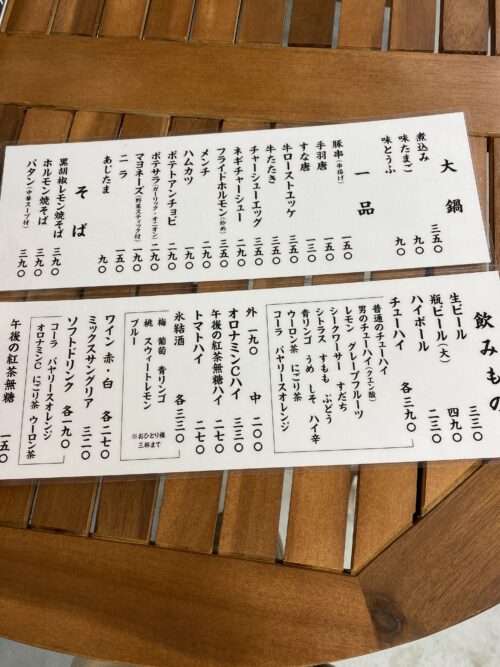 大鍋
煮込み 三五〇
味たまご 九〇
味とうふ 九〇
一品
豚串(串揚げ) 一五〇
手羽唐 一五〇
すな唐 一三〇
牛ローストユッケ 三五〇
牛たたき 三五〇
チャーシューエッグ 三五〇
ネギチャーシュー 二九〇
フライドホルモン(炒め) 三五〇
メンチ 二九〇
ハムカツ 二九〇
ポテトアンチョビ 二九〇
ポテサラ(ガーリック・オニオン) 二九〇
マヨネーズ(野菜スティック付)
ニラ 一五〇
あじたま 九〇
そば
黒胡椒レモン焼そば 三九〇
ホルモン焼そば 三九〇
バタン(中華スープ付) 三九〇
飲みもの
生ビール 三三〇
瓶ビール(大) 四九〇
ハイボール 二三〇
チューハイ 各二九〇
普通のチューハイ
男のチューハイ(クエン酸)
レモン グレープフルーツ
シークワーサー すだち
シトラス すもも ぶどう
青リンゴ うめ しそ ハイ辛
ウーロン茶 にごり茶
コーラ バヤリースオレンジ
外 一九〇 中 二〇〇
オロナミンCハイ 三三〇
午後の紅茶無糖ハイ 二七〇
トマトハイ 二七〇
氷結酒 各三三〇
梅 葡萄 青リンゴ
桃 スウィートレモン
ブルー
※おひとり様
三杯まで
ワイン 赤・白 各二七〇
ミックスサングリア 三二〇
ソフトドリンク 各一九〇
コーラ バヤリースオレンジ
オロナミンC にごり茶 ウーロン茶
午後の紅茶無糖 一五〇